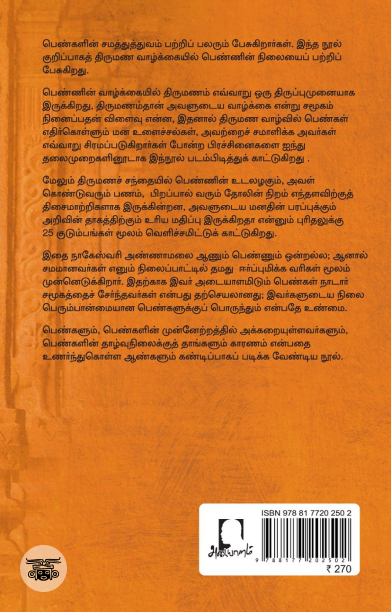 பெண்களின் சமத்துத்துவம் பற்றிப் பலரும் பேசுகிறார்கள். இந்த நூல்
குறிப்பாகத் திருமண வாழ்க்கையில் பெண்ணின் நிலையைப் பற்றிப்
பேசுகிறது.
பெண்ணின் வாழ்க்கையில் திருமணம் எவ்வாறு ஒரு திருப்புமுனையாக
இருக்கிறது, திருமணம்தான் அவளுடைய வாழ்க்கை என்று சமூகம்
நினைப்பதன் விளைவு என்ன, இதனால் திருமண வாழ்வில் பெண்கள்
எதிர்கொள்ளும் மன உளைச்சல்கள், அவற்றைச் சமாளிக்க அவர்கள்
எவ்வாறு சிரமப்படுகிறார்கள் போன்ற பிரச்சினைகளை ஐந்து
தலைமுறைகளினூடாக இந்நூல் படம்பிடித்துக் காட்டுகிறது .
மேலும் திருமணச் சந்தையில் பெண்ணின் உடலழகும், அவள்
கொண்டுவரும் பணம், பிறப்பால் வரும் தோலின் நிறம் எந்தளவிற்குத்
திசைமாற்றிகளாக இருக்கின்றன, அவளுடைய மனதின் பரப்புக்கும்
அறிவின் தாகத்திற்கும் உரிய மதிப்பு இருக்கிறதா என்னும் புரிதலுக்கு
25 குடும்பங்கள் மூலம் வெளிச்சமிட்டுக் காட்டுகிறது.
இதை நாகேஸ்வரி அண்ணாமலை ஆணும் பெண்ணும் ஒன்றல்ல; ஆனால்
சமமானவர்கள் எனும் நிலைப்பாட்டில் தமது ஈர்ப்புமிக்க வரிகள் மூலம்
முன்னெடுக்கிறார். இதற்காக இவர் அடையாளமிடும் பெண்கள் நாடார்
சமூகத்தைச் சேர்ந்தவர்கள் என்பது தற்செயலானது; இவர்களுடைய நிலை
பெரும்பான்மையான பெண்களுக்குப் பொருந்தும் என்பதே உண்மை.
பெண்களும், பெண்களின் முன்னேற்றத்தில் அக்கறையுள்ளவர்களும்,
பெண்களின் தாழ்வுநிலைக்குத் தாங்களும் காரணம் என்பதை
உணர்ந்துகொள்ள ஆண்களும் கண்டிப்பாகப் படிக்க வேண்டிய நூல்.
ISBN 978 81 7720 250 2
அடையாளம்
9 788177 202502
₹ 270